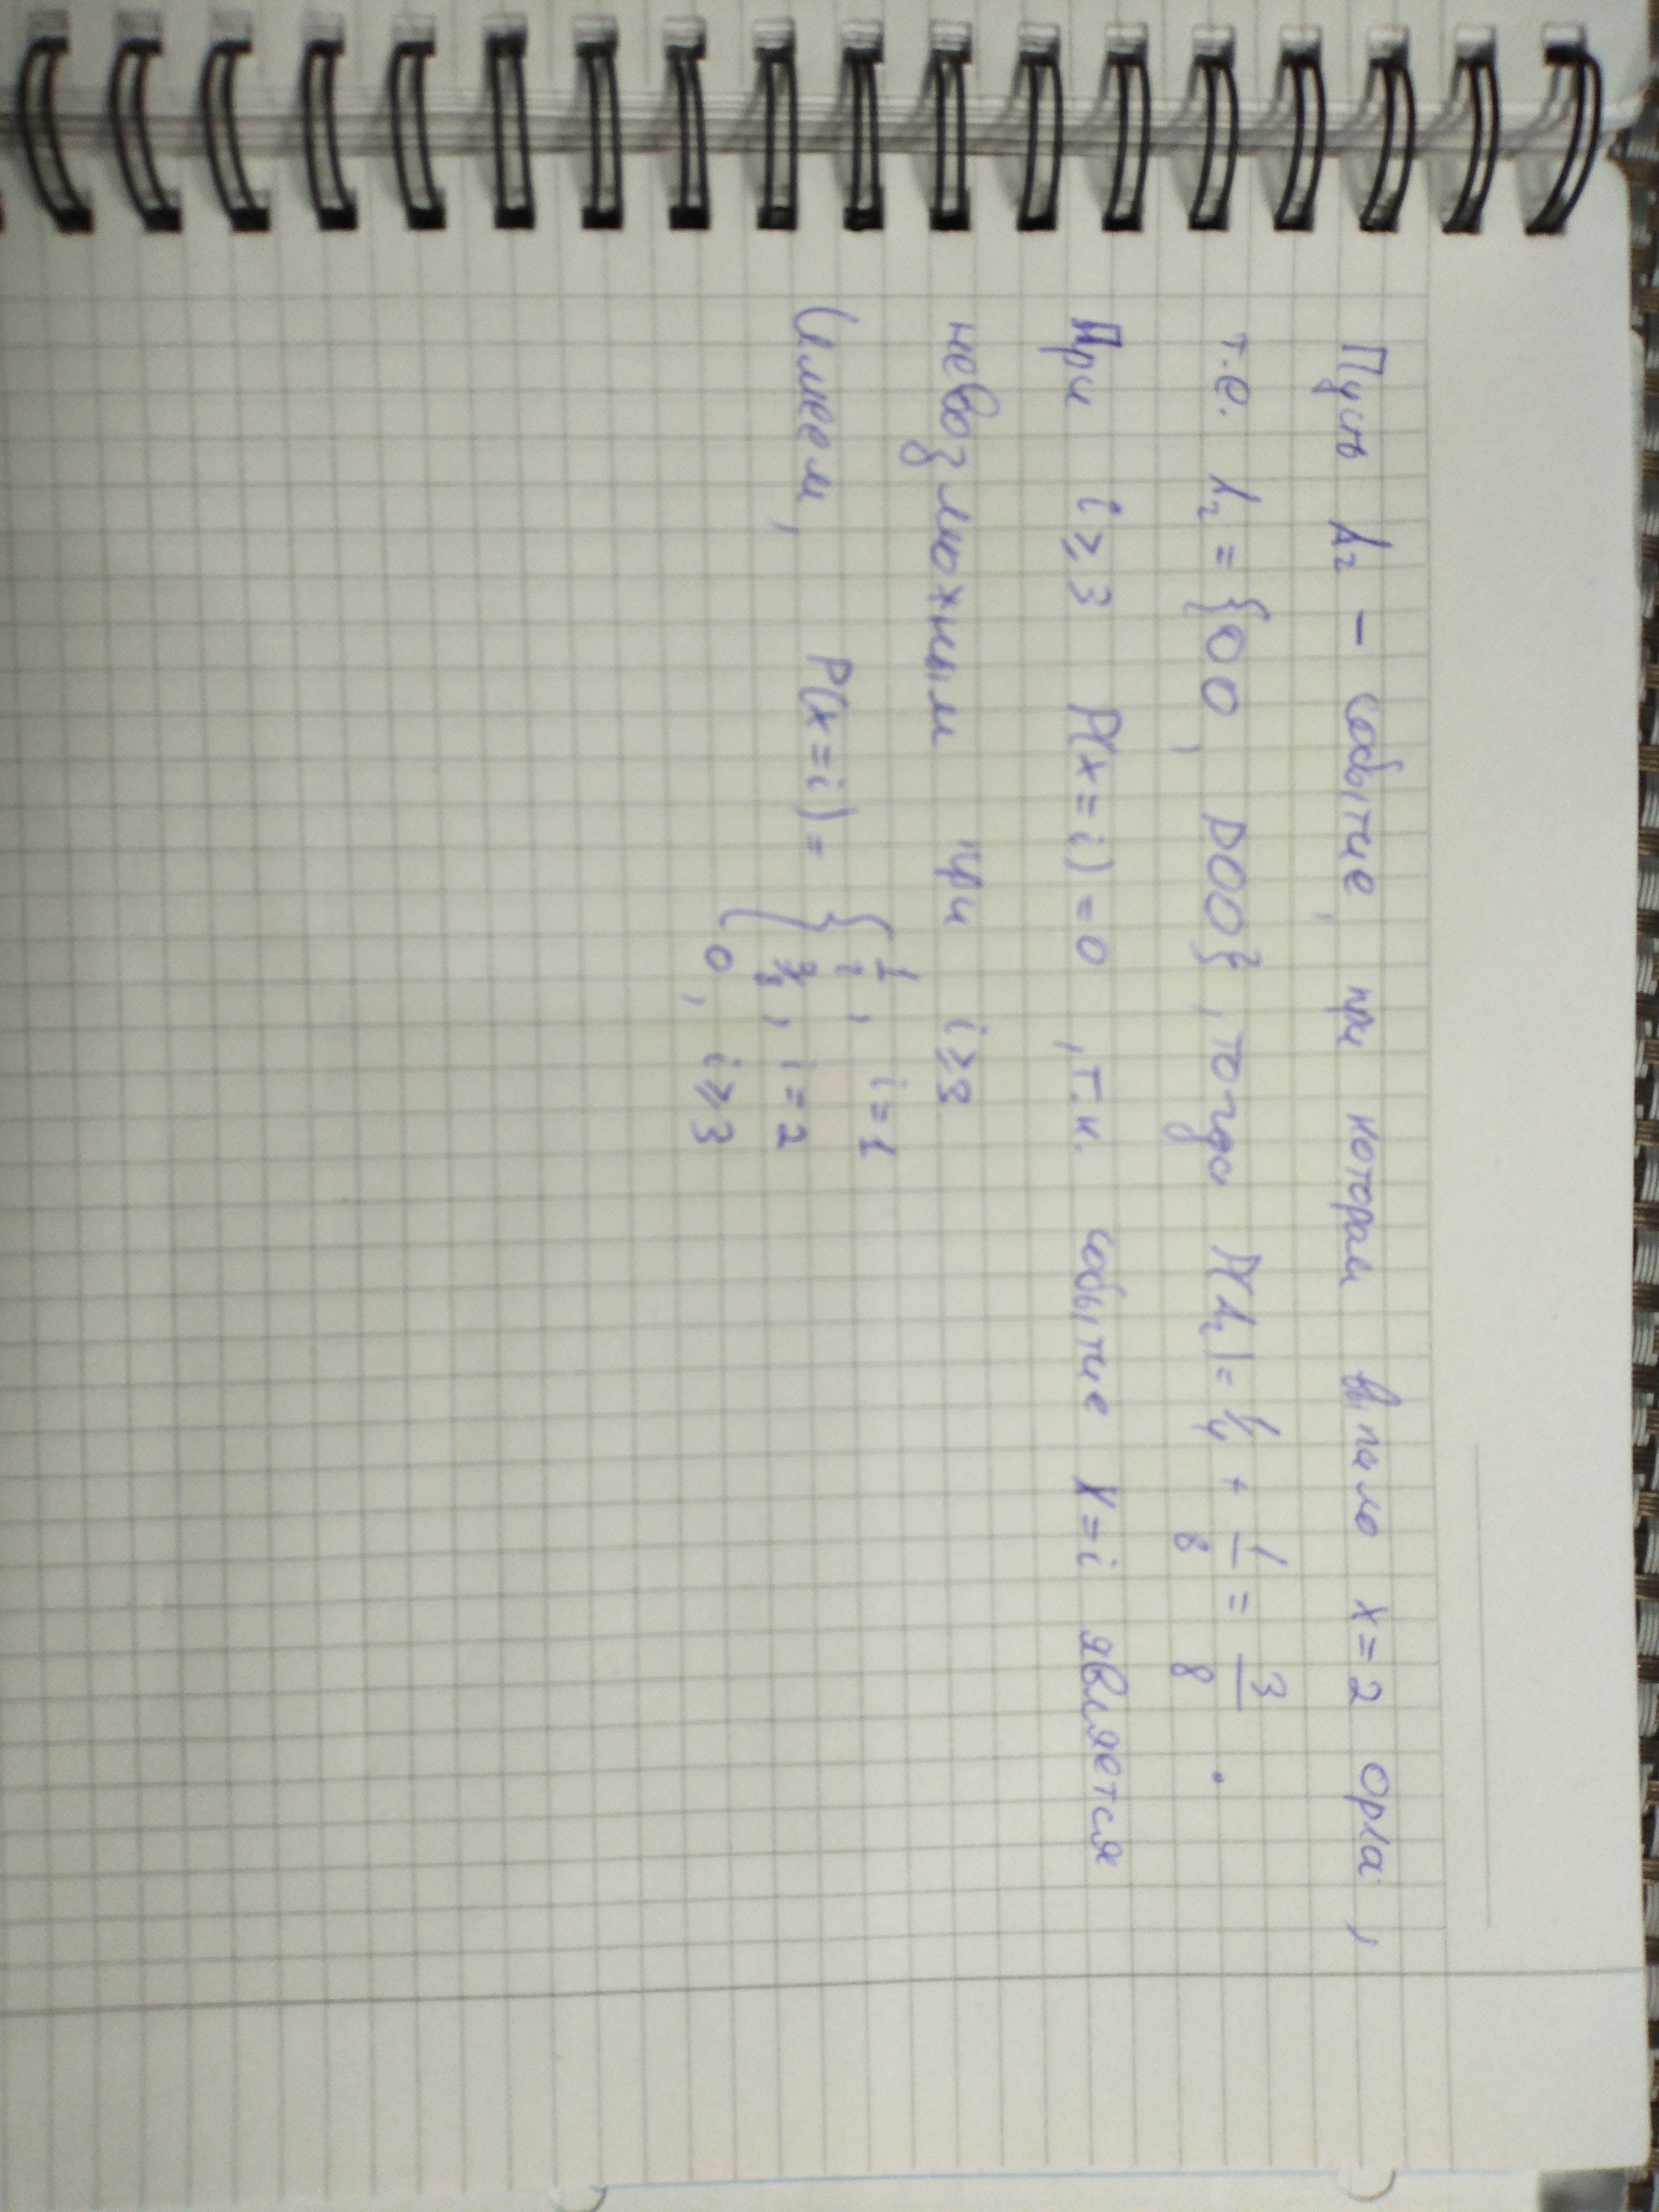 Пусть A₂ – событие, при котором выпало x=2 орла,
т.е. A₂ = {ОО, РОО}, тогда P(A₂)= 1/4 + 1/8 = 3/8.
При i≥3 P(x=i)=0, т.к. событие x=i является
невозможным при i≥3
Имеем, P(x=i)= {
1/2, i=1
3/8, i=2
0, i≥3